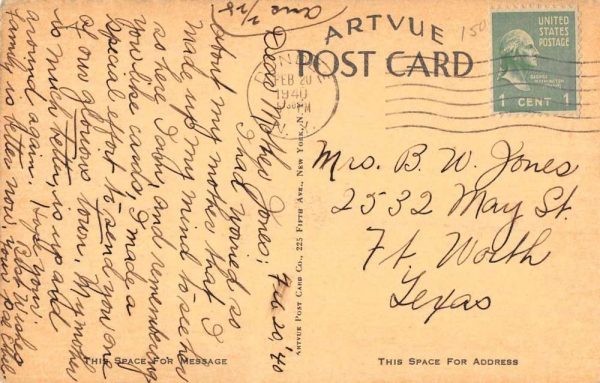 ans 2/25
Feb 20, '40
Dear Mother Jones:
I had worried so
about my mother that I
made up my mind to see her
so here I am, and remembering
you like cards, I made a
special effort to send you one
of our glorious town. My mother
is much better, is up and
around again. Hope your
family is better now,
Best Wishes
THIS SPACE FOR MESSAGE
ARTVUE
POST CARD
ARTVUE POST CARD CO., 225 FIFTH AVE., NEW YORK, N.Y.
FEB 20
1940
N.Y.
150
UNITED
STATES
POSTAGE
GEORGE WASHINGTON
1 CENT 1
Mrs. B. W. Jones
2532 May St.
Ft. Worth
Texas
THIS SPACE FOR ADDRESS